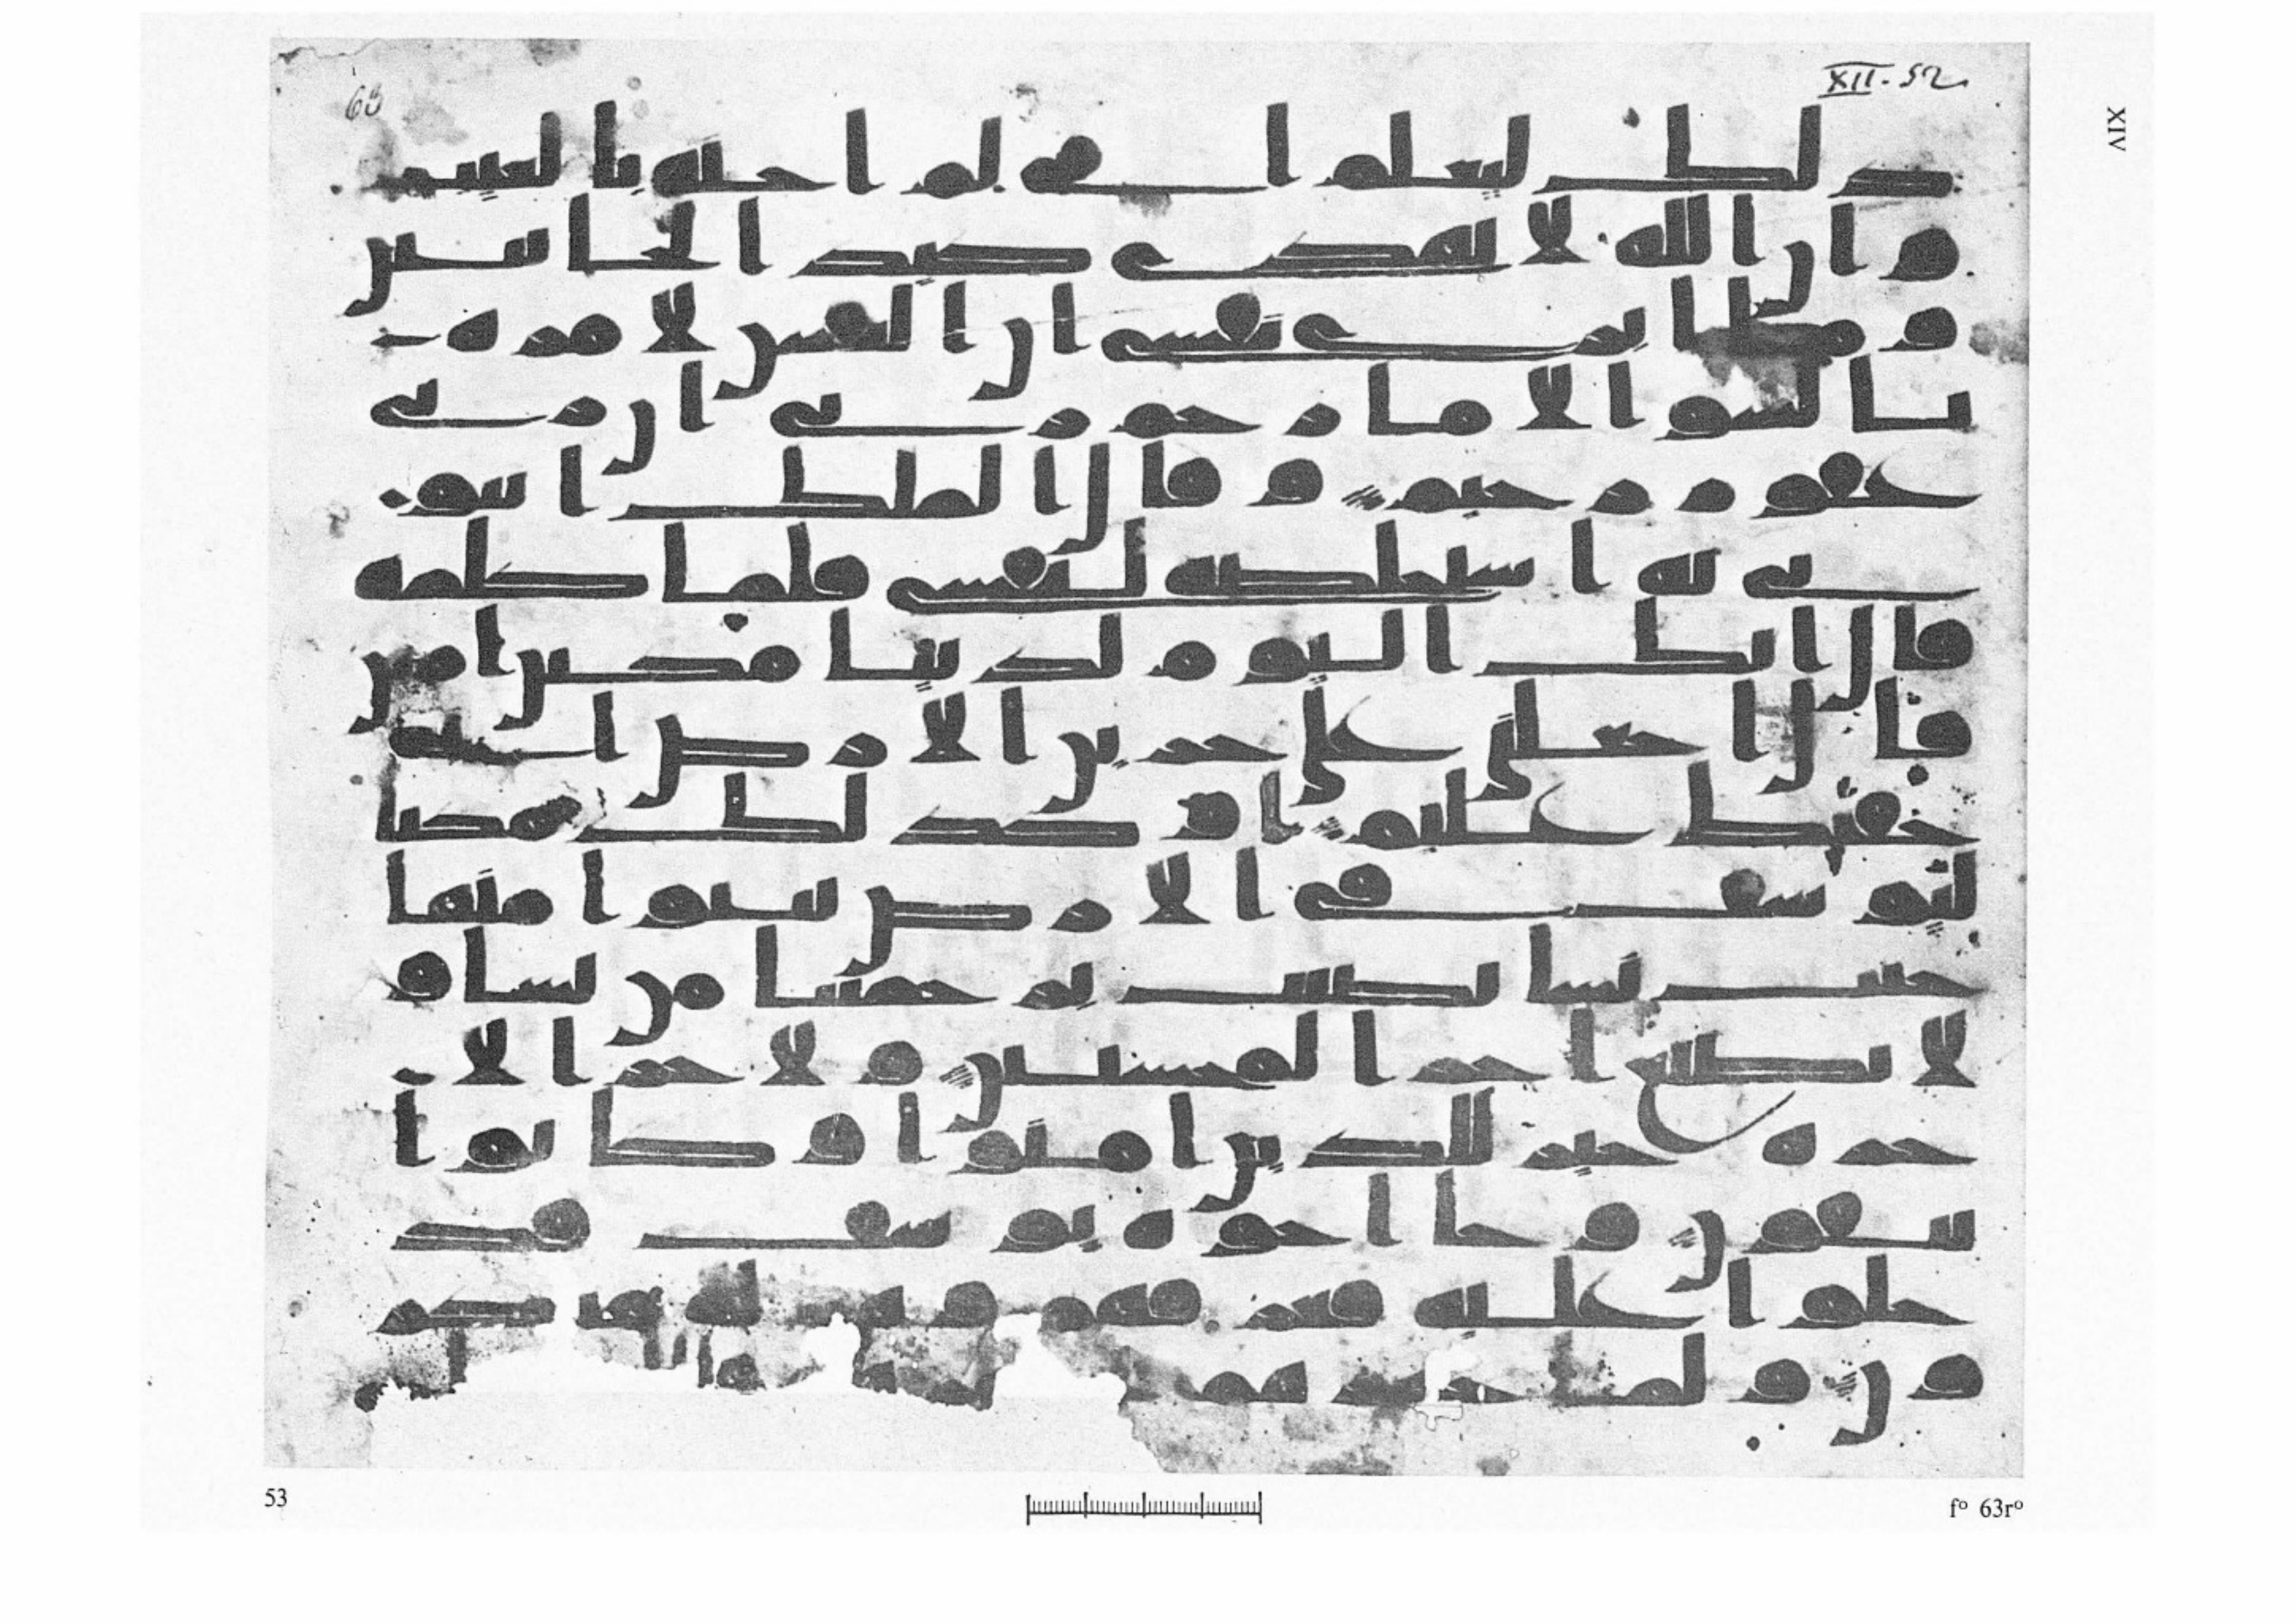 63
XII. 52
XIV
ذلك ليعلم اني لم اخنه بالغيب
وان الله لا يهدي كيد الخاينين
وما ابري نفسي ان النفس لامرة
بالسو الا ما رحم ربي ان ربي
غفور رحيم وقال الملك ايتو
ني به استخلصه لنفسي فلما كلمه
قال انك اليوم لدينا مكين امين
قال اجعلني على خزين الارض اني
حفيظ عليم وكذلك مكنا
ليوسف في الارض يتبوا منها
حيث يشا نصيب برحمتنا من نشا و
لا نضيع اجر المحسنين ولاجر الا
خرة خير للذين امنوا وكانوا
يتقون وجا اخوة يوسف فد
خلوا عليه فعرفهم وهم له منكر
ون ولما جهزهم
53
f° 63r°